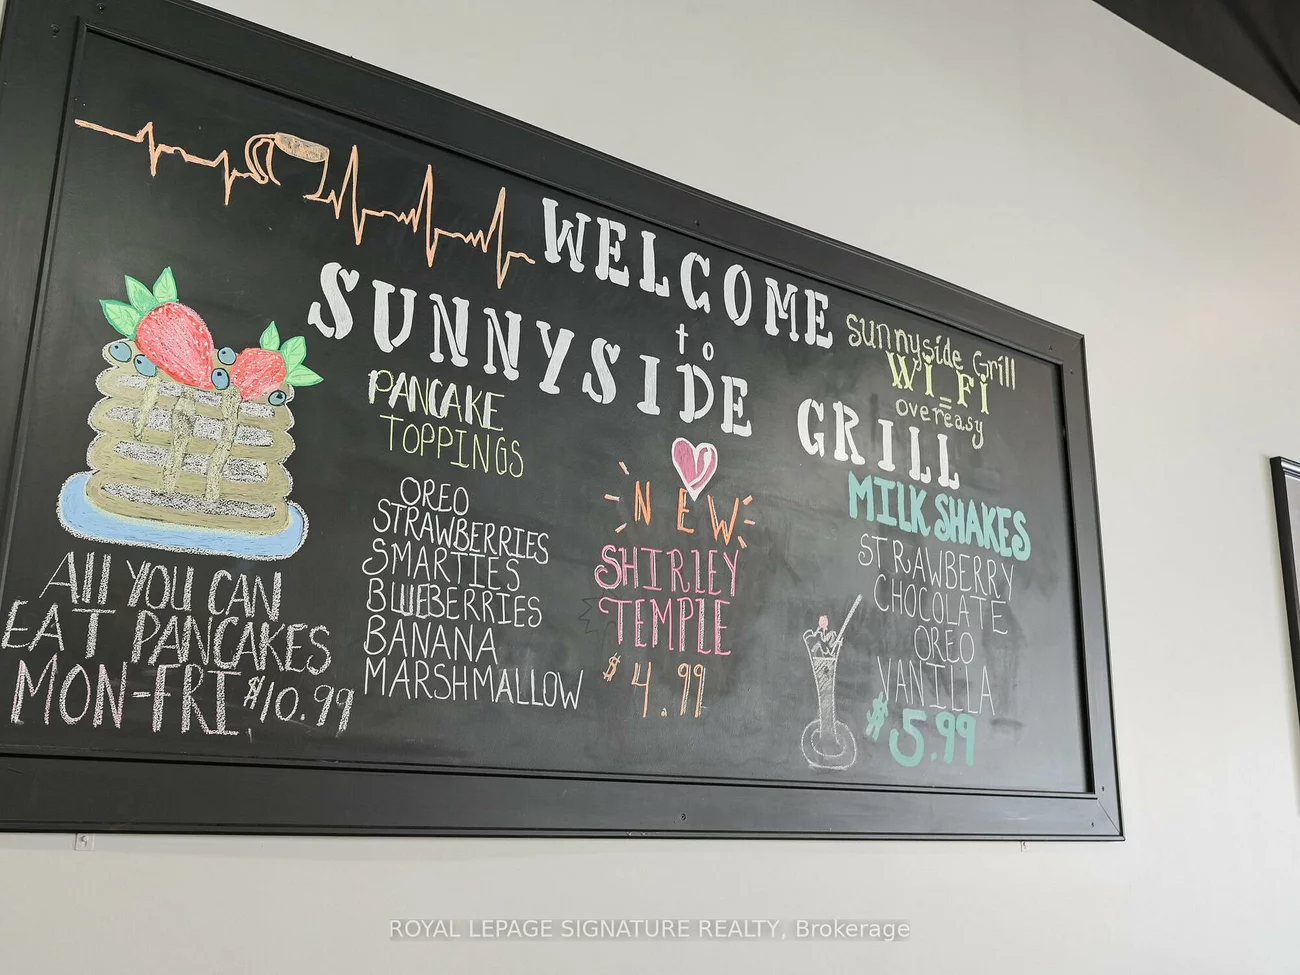 WELCOME
to
SUNNYSIDE GRILL
sunnyside Grill
Wi_Fi
=
overeasy
PANCAKE
TOPPINGS
OREO
STRAWBERRIES
SMARTIES
BLUEBERRIES
BANANA
MARSHMALLOW
All YOU CAN
EAT PANCAKES
MON-FRI $10.99
NEW
SHIRLEY
TEMPLE
$4.99
MILKSHAKES
STRAWBERRY
CHOCOLATE
OREO
VANILLA
$5.99
ROYAL LEPAGE SIGNATURE REALTY, Brokerage